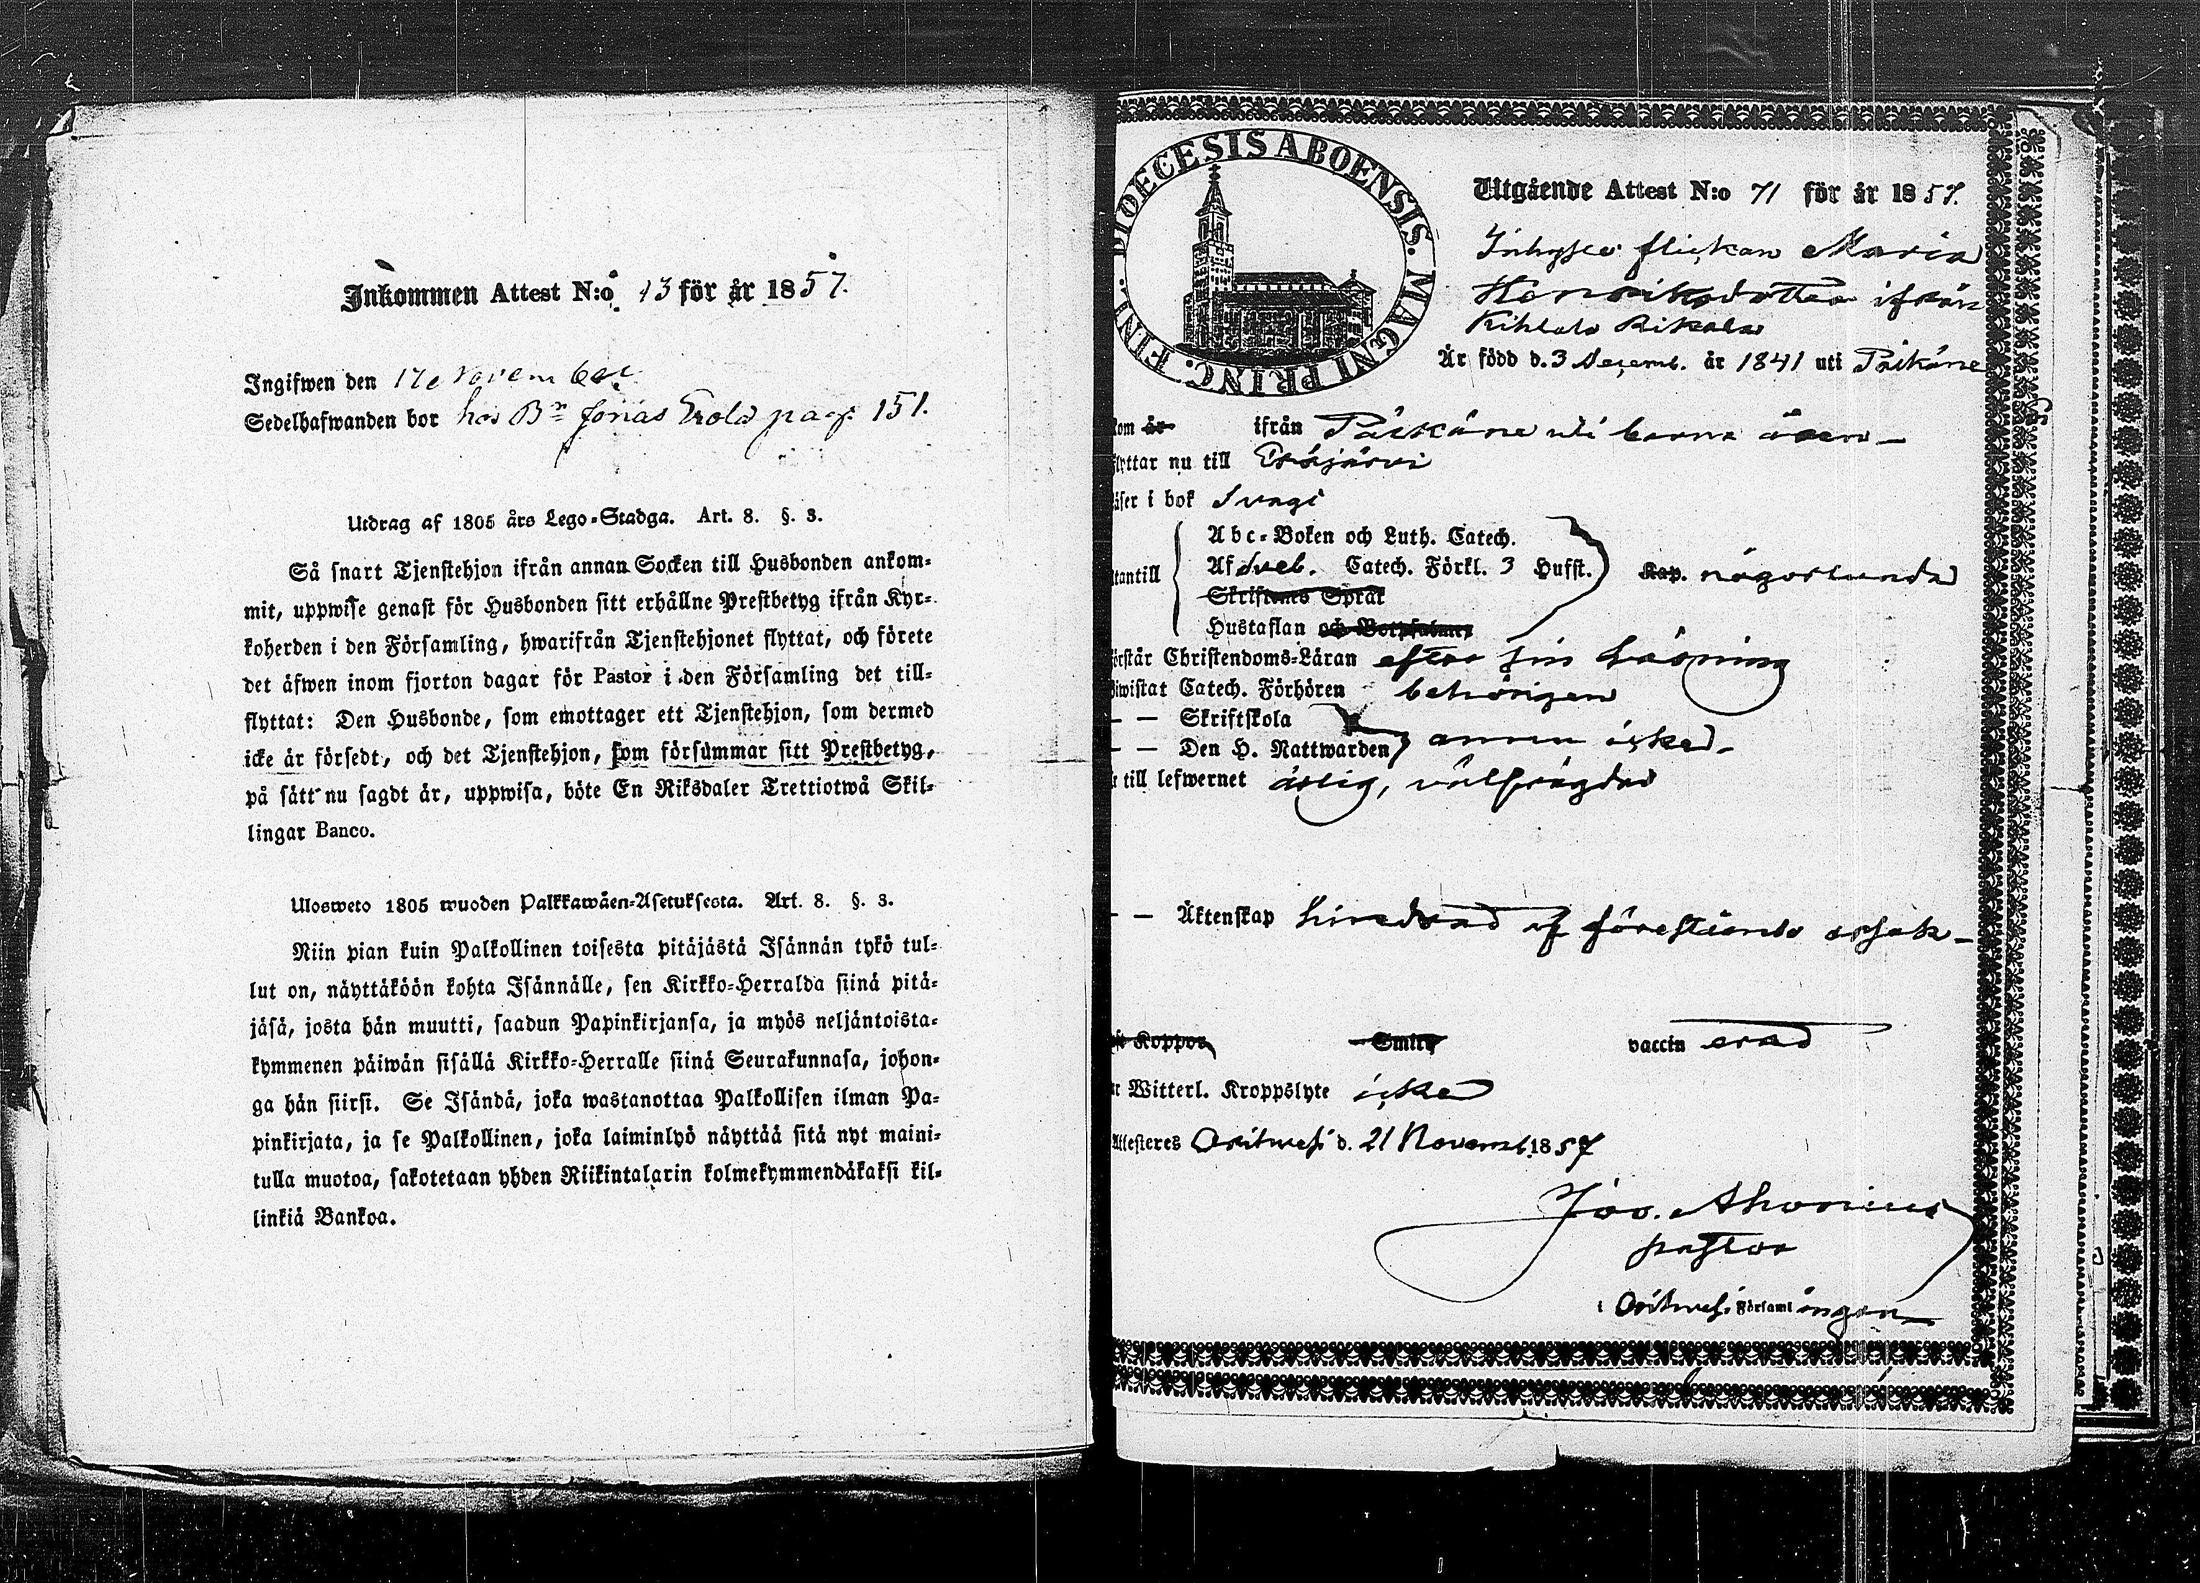 Inkommen Attest N:o 13 för år 1857.
Ingifwen den 17e November
Sedelhafwanden bor hos Bn Jonas Erola pag. 151.
Utdrag af 1805 års Lego-Stadga. Art. 8. §. 3.
Så snart Tjenstehjon ifrån annan Socken till Husbonden ankom-
mit, uppwise genast för Husbonden sitt erhållne Prestbetyg ifrån Kyr-
koherden i den Församling, hwarifrån Tjenstehjonet flyttat, och förete
det äfwen inom fjorton dagar för Pastor i den Församling det till-
flyttat: Den Husbonde, som emottager ett Tjenstehjon, som dermed
icke är försedt, och det Tjenstehjon, som försummar sitt Prestbetyg,
på sätt nu sagdt är, uppwisa, böte En Riksdaler Trettiotwå Skil-
lingar Banco.
Ulosweto 1805 wuoden Palkkawäen-Asetuksesta. Art. 8. §. 3.
Niin pian kuin Palkollinen toisesta pitäjästä Isännän tykö tul-
lut on, näyttäköön kohta Isännälle, sen Kirkko-Herralda siinä pitä-
jäsä, josta hän muutti, saadun Papinkirjansa, ja myös neljäntoista-
kymmenen päiwän sisällä Kirkko-Herralle siinä Seurakunnasa, johon-
ga hän siirsi. Se Isändä, joka wastanottaa Palkollisen ilman Pa-
pinkirjata, ja se Palkollinen, joka laiminlyö näyttää sitä nyt maini-
tulla muotoa, sakotetaan yhden Riikintalarin kolmekymmendäkaksi kil-
linkiä Bankoa.
DIOECESIS ABOENSIS. MAGNI PRINC. FINL.
Utgående Attest N:o 71 för år 1857.
Inhyses flickan Maria
Henriksdotter ifrån
Rikala
Är född d. 3 Decemb. år 1841 uti Pälkäne
kom är ifrån Pälkäne uti barna åren
flyttar nu till Eräjärvi
läser i bok svagt
utantill Abc-Boken och Luth. Catech.
Af Sveb. Catech. Förkl. 3 Hufst. Kap. någorlunda
Skriftens Språk
Hustaflan och Botpsalmer
förstår Christendoms-Läran efter sin läsning
biwistat Catech. Förhören behörigen
— — Skriftskola
— — Den H. Nattwarden ännu icke
är till lefwernet ärlig, välfrägdad
— — Äktenskap hindrad af förestående orsak
haft Koppor Smitt vaccin erad
har Witterl. Kroppslyte icke
Attesteres Oritwesi d. 21 Novemb. 1857
Joo. Ahonius
pastor
i Oritwesi Församl ingen